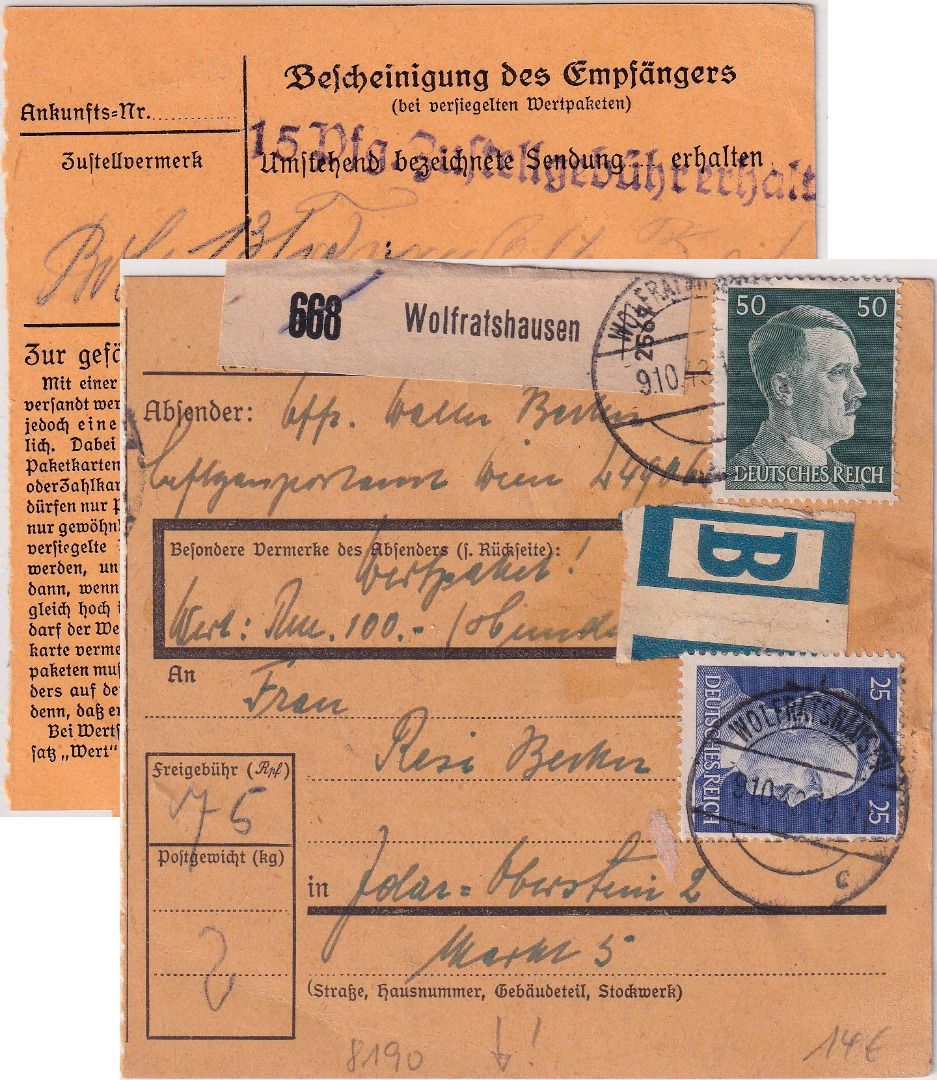 Bescheinigung des Empfängers
(bei versiegelten Wertpaketen)
Ankunfts=Nr.
Zustellvermerk
Umstehend bezeichnete Sendung erhalten
15 Pfg. Zustellgebühr erhalt
Zur gefä
Mit einer
versandt wer
jedoch eine
lich. Dabei
Paketkarten
oder Zahlkar
dürfen nur p
nur gewöhnl
versiegelte
werden, un
dann, wenn
gleich hoch i
darf der We
karte verme
paketen muß
ders auf de
denn, daß er
Bei Wertf
satz „Wert“
668 Wolfratshausen
WOLFRATSHAUSEN
2564
9.10.43
50 50
DEUTSCHES REICH
Absender: Uffz. Walter Becker
Besondere Vermerke des Absenders (s. Rückseite):
Wertpaket!
Wert: Rm. 100.-
B
An Frau
Resi Becker
25 25
DEUTSCHES REICH
WOLFRATSHAUSEN
9.10.43
c
Freigebühr (Rpf)
75
Postgewicht (kg)
2
in Idar=Oberstein 2
Markt 5
(Straße, Hausnummer, Gebäudeteil, Stockwerk)
8190 ! 14€